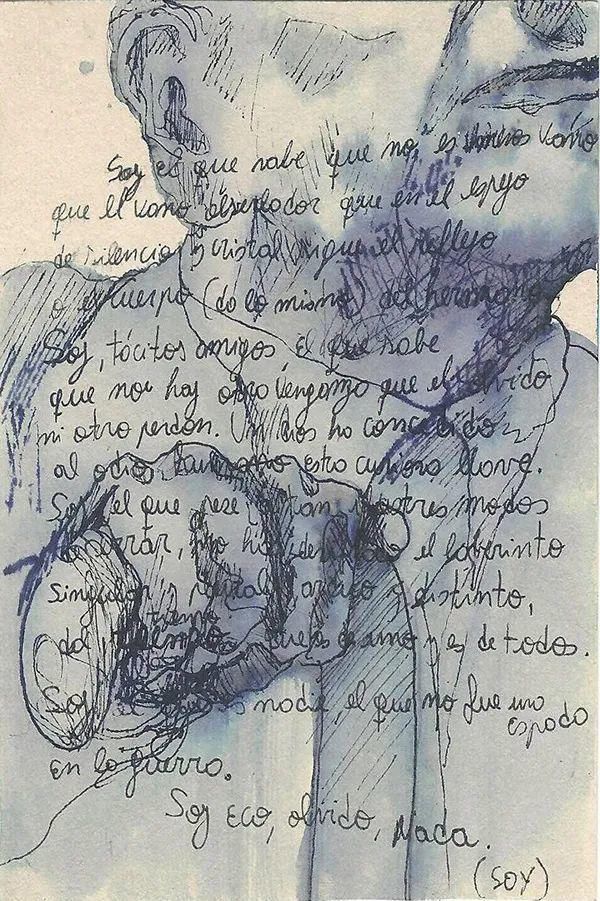 Soy el que sabe que no es menos vano
que el vano observador que en el espejo
de silencio y cristal sigue el reflejo
o el cuerpo (da lo mismo) del hermano
Soy, tácitos amigos, el que sabe
que no hay otra venganza que el olvido
ni otro perdón. Un dios ha concedido
al odio humano esta curiosa llave.
Soy el que pese a tan ilustres modos
de errar, no ha descifrado el laberinto
singular y plural arduo y distinto,
del tiempo que es de uno y es de todos.
Soy el que es nadie, el que no fue una
espada
en la guerra.
Soy eco, olvido, Nada.
(SOY)